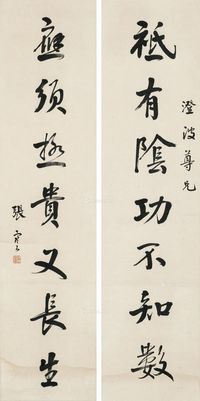 祗有陰功不知數
澄波尊兄
應須極貴又長生
張寅